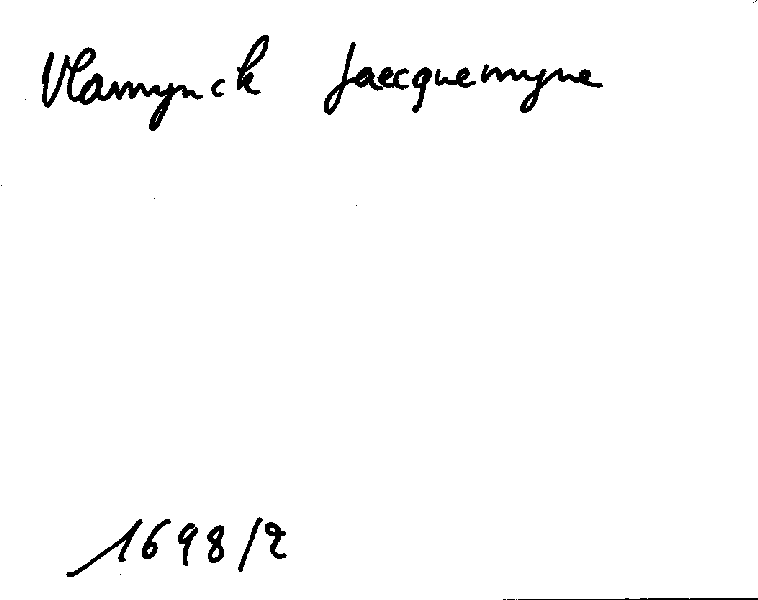 Vlamynck Jaecquemyne
1698/2